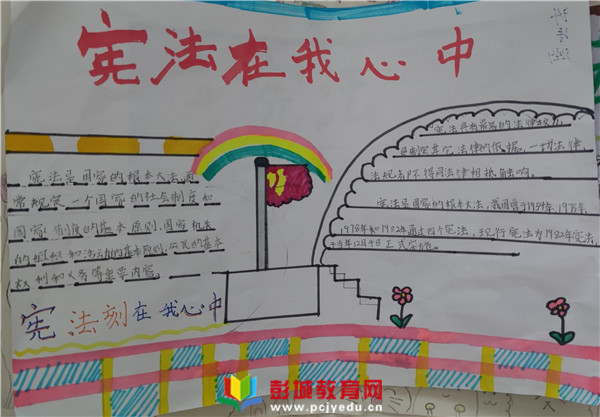 宪法在我心中
宪法是国家的根本大法,通
常规定一个国家的社会制度和
国家制度的基本原则,国家机关
的组织和活动的基本原则,公民的基本
权利和义务等重要内容。
宪法刻在我心中
宪法具有最高的法律效力,
是制定其它法律的依据,一切法律、
法规都不得同法律相抵触。
宪法是国家的根本大法,我国曾于1954年、1975年、
1978年和1982年通过四个宪法,现行宪法为1982年宪法,
于当年12月4日正式实施。
彭城教育网
www.pcjyedu.cn